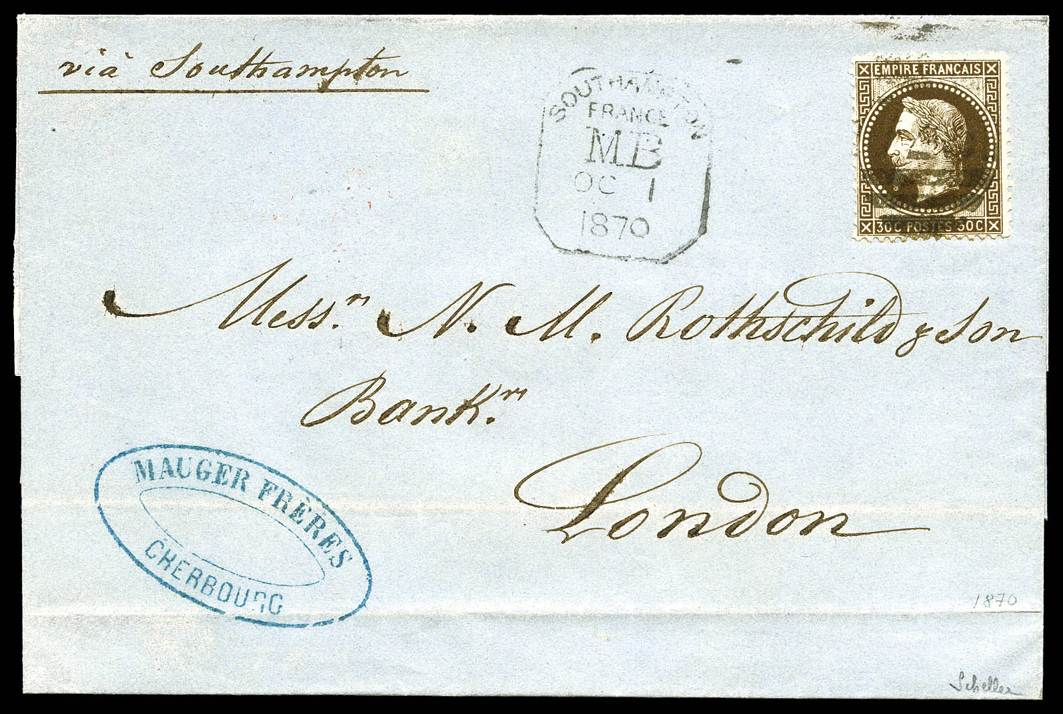 viâ Southampton
SOUTHAMPTON
FRANCE
MB
OC 1
1870
EMPIRE FRANCAIS
30C POSTES 30C
Messrs N. M. Rothschild & Son
Bankrs
London
MAUGER FRÈRES
CHERBOURG
1870
Scheller